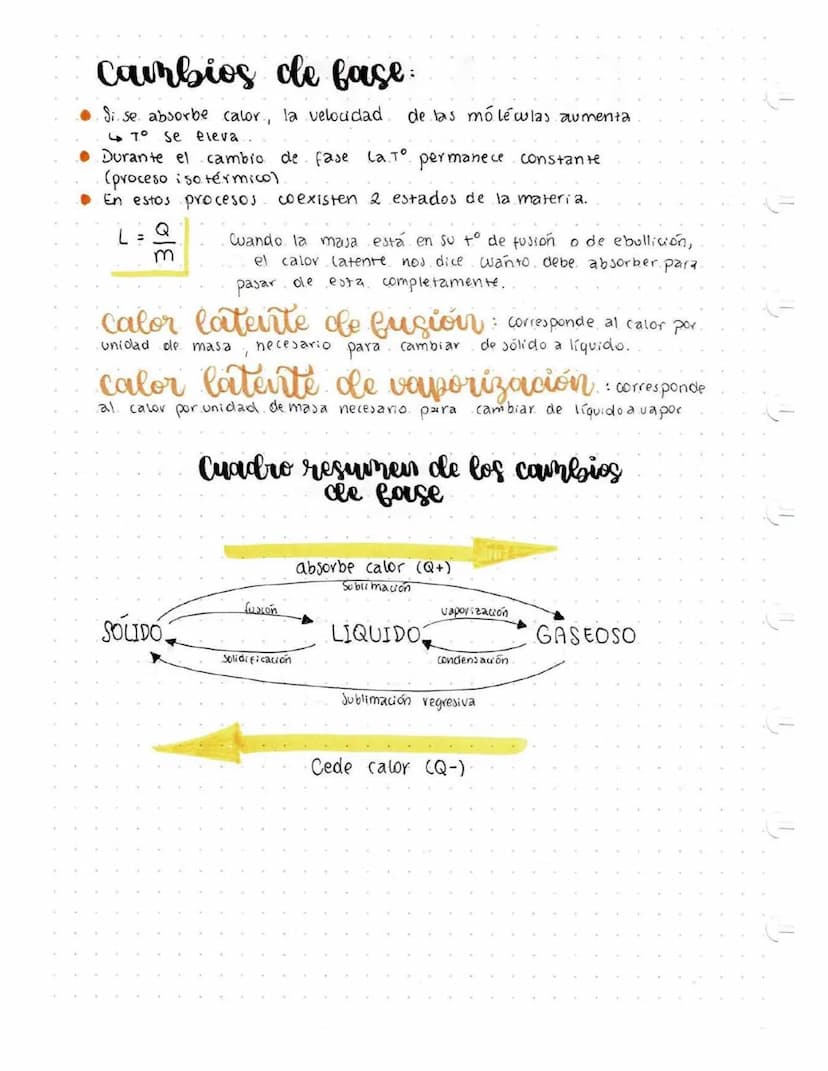 Cambios de fase:
• Si se absorbe calor, la velocidad de las moléculas aumenta
↳ Tº se eleva.
• Durante el cambio de fase la Tº permanece constante
(proceso isotérmico)
• En estos procesos coexisten 2 estados de la materia.
L = Q/m
Cuando la masa está en su tº de fusión o de ebullición,
el calor latente nos dice cuánto debe absorber para
pasar de esta completamente.
calor latente de fusión: corresponde al calor por
unidad de masa, necesario para cambiar de sólido a líquido.
calor latente de vaporización: corresponde
al calor por unidad de masa necesario para cambiar de líquido a vapor
Cuadro resumen de los cambios
de fase
absorbe calor (Q+)
Sublimación
fusión
vaporización
SÓLIDO
LIQUIDO
GASEOSO
solidificación
condensación
sublimación regresiva
Cede calor (Q-)